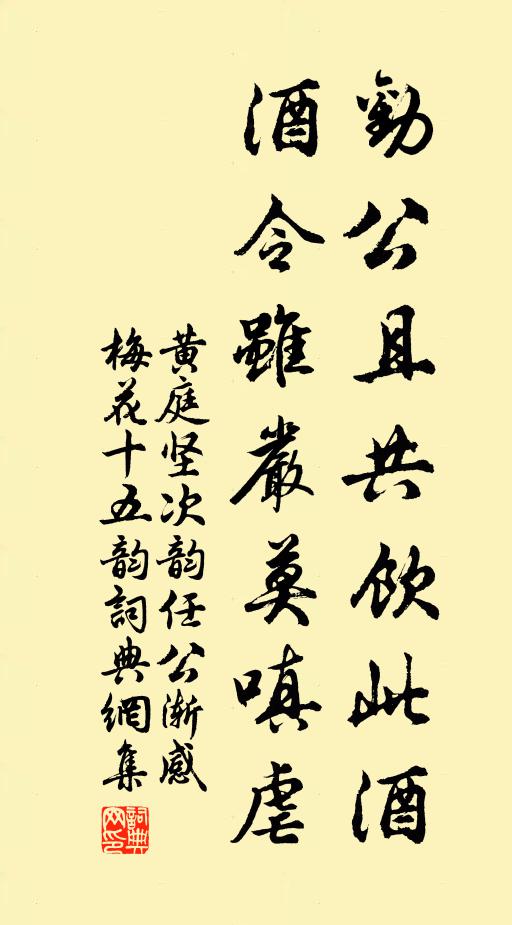 勸公且共飲此酒
酒令雖嚴莫嗔虐
黄庭坚次韵任公渐感
梅花十五韵詞典網集
詞典
网印